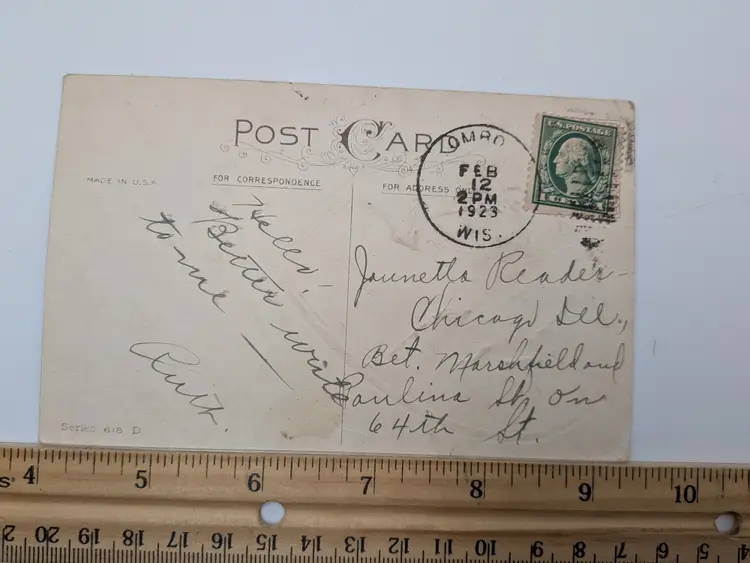 POST CARD
MADE IN U.S.A.
FOR CORRESPONDENCE
FOR ADDRESS
OMRO
FEB
12
2 PM
1923
WIS.
U.S. POSTAGE
Hello -
Better write
to me —
Ruth.
Jaunetta Reader -
Chicago Ill.,
Bet. Marshfield and
Paulina St. on
64th St.
Series 618 D
4 5 6 7 8 9 10
20 19 18 17 16 15 14 13 12 11 10 9 8 7 6 5 4